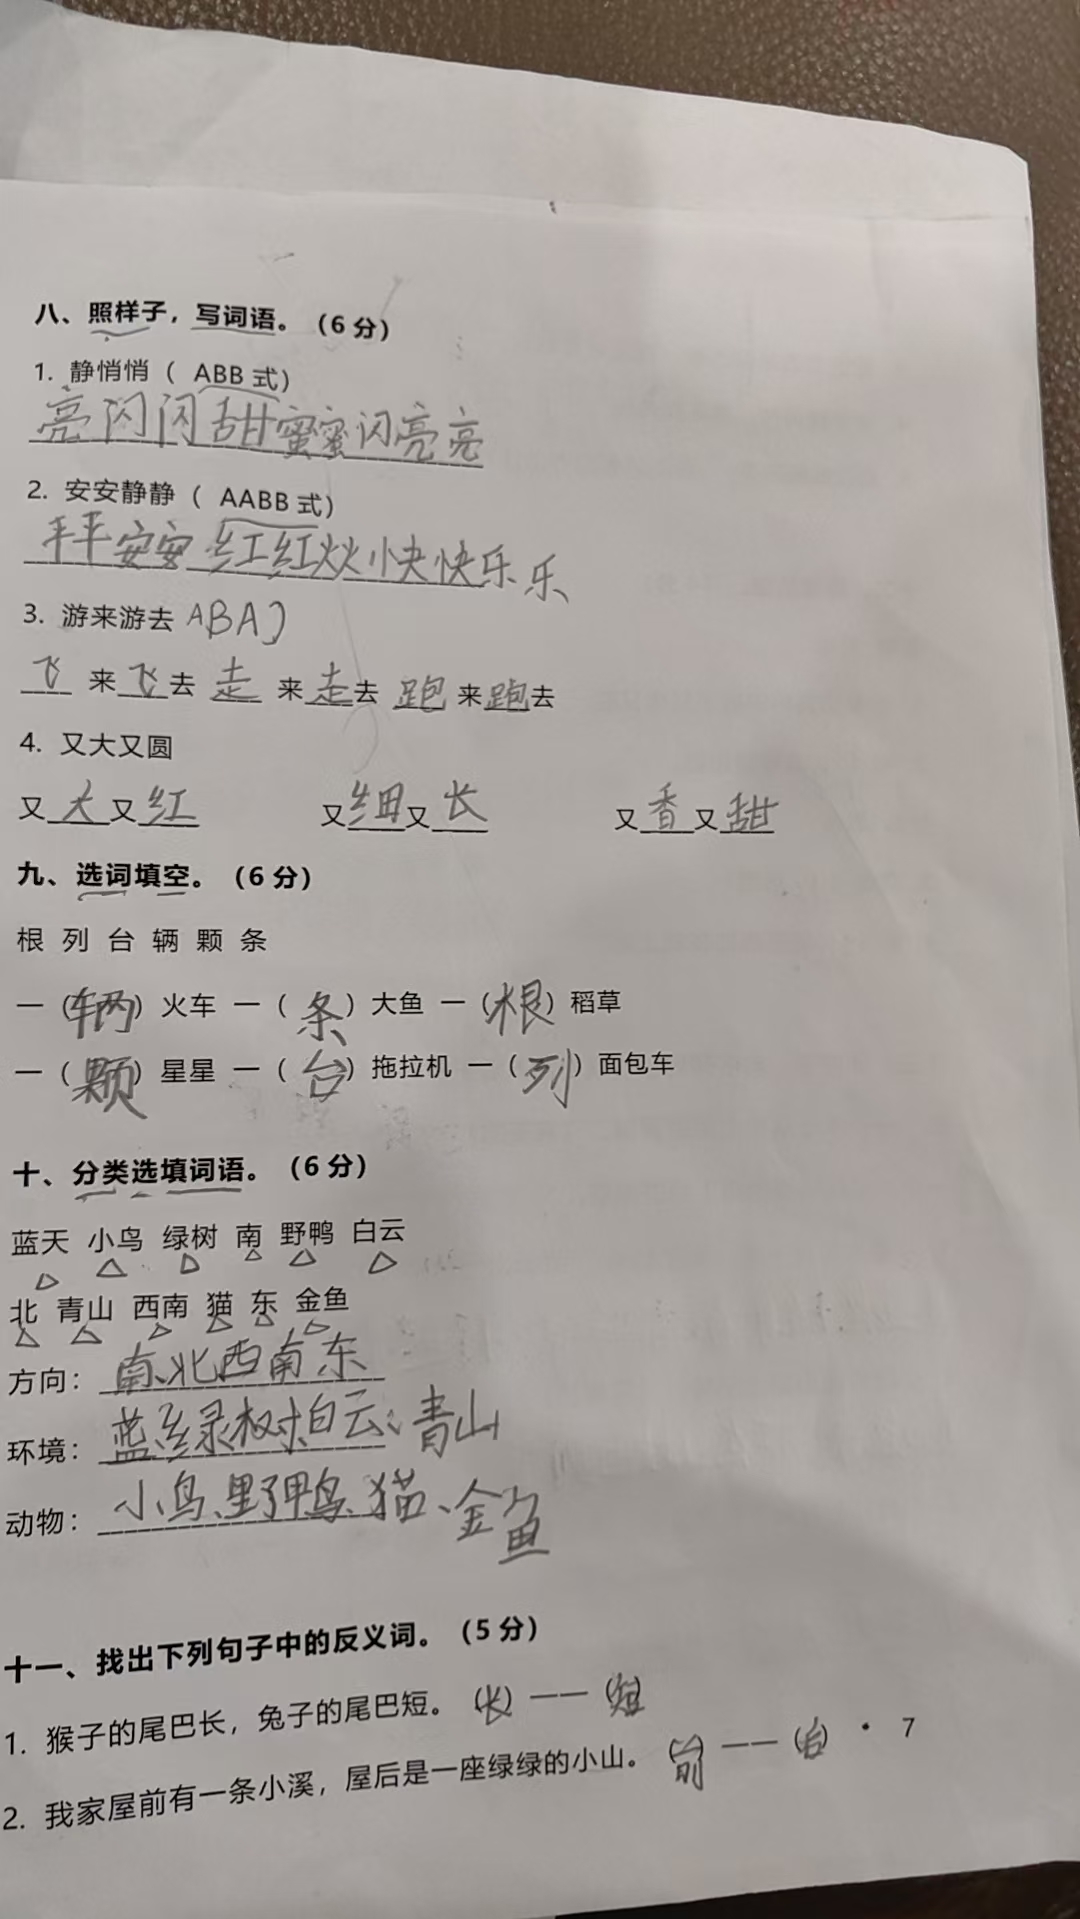 八、照样子，写词语。（6分）
1. 静悄悄（ ABB 式）
亮闪闪 甜蜜蜜 闪亮亮
2. 安安静静（ AABB 式）
平平安安 红红火火 快快乐乐
3. 游来游去 ABA
飞 来 飞 去 走 来 走 去 跑 来 跑 去
4. 又大又圆
又 大 又 红 又 细 又 长 又 香 又 甜
九、选词填空。（6分）
根 列 台 辆 颗 条
一（辆）火车 一（条）大鱼 一（根）稻草
一（颗）星星 一（台）拖拉机 一（列）面包车
十、分类选填词语。（6分）
蓝天 小鸟 绿树 南 野鸭 白云
北 青山 西南 猫 东 金鱼
方向：南、北西南东
环境：蓝、绿树白云、青山
动物：小鸟、野鸭、猫、金鱼
十一、找出下列句子中的反义词。（5分）
1. 猴子的尾巴长，兔子的尾巴短。（长）——（短）
2. 我家屋前有一条小溪，屋后是一座绿绿的小山。（前）——（后）
7